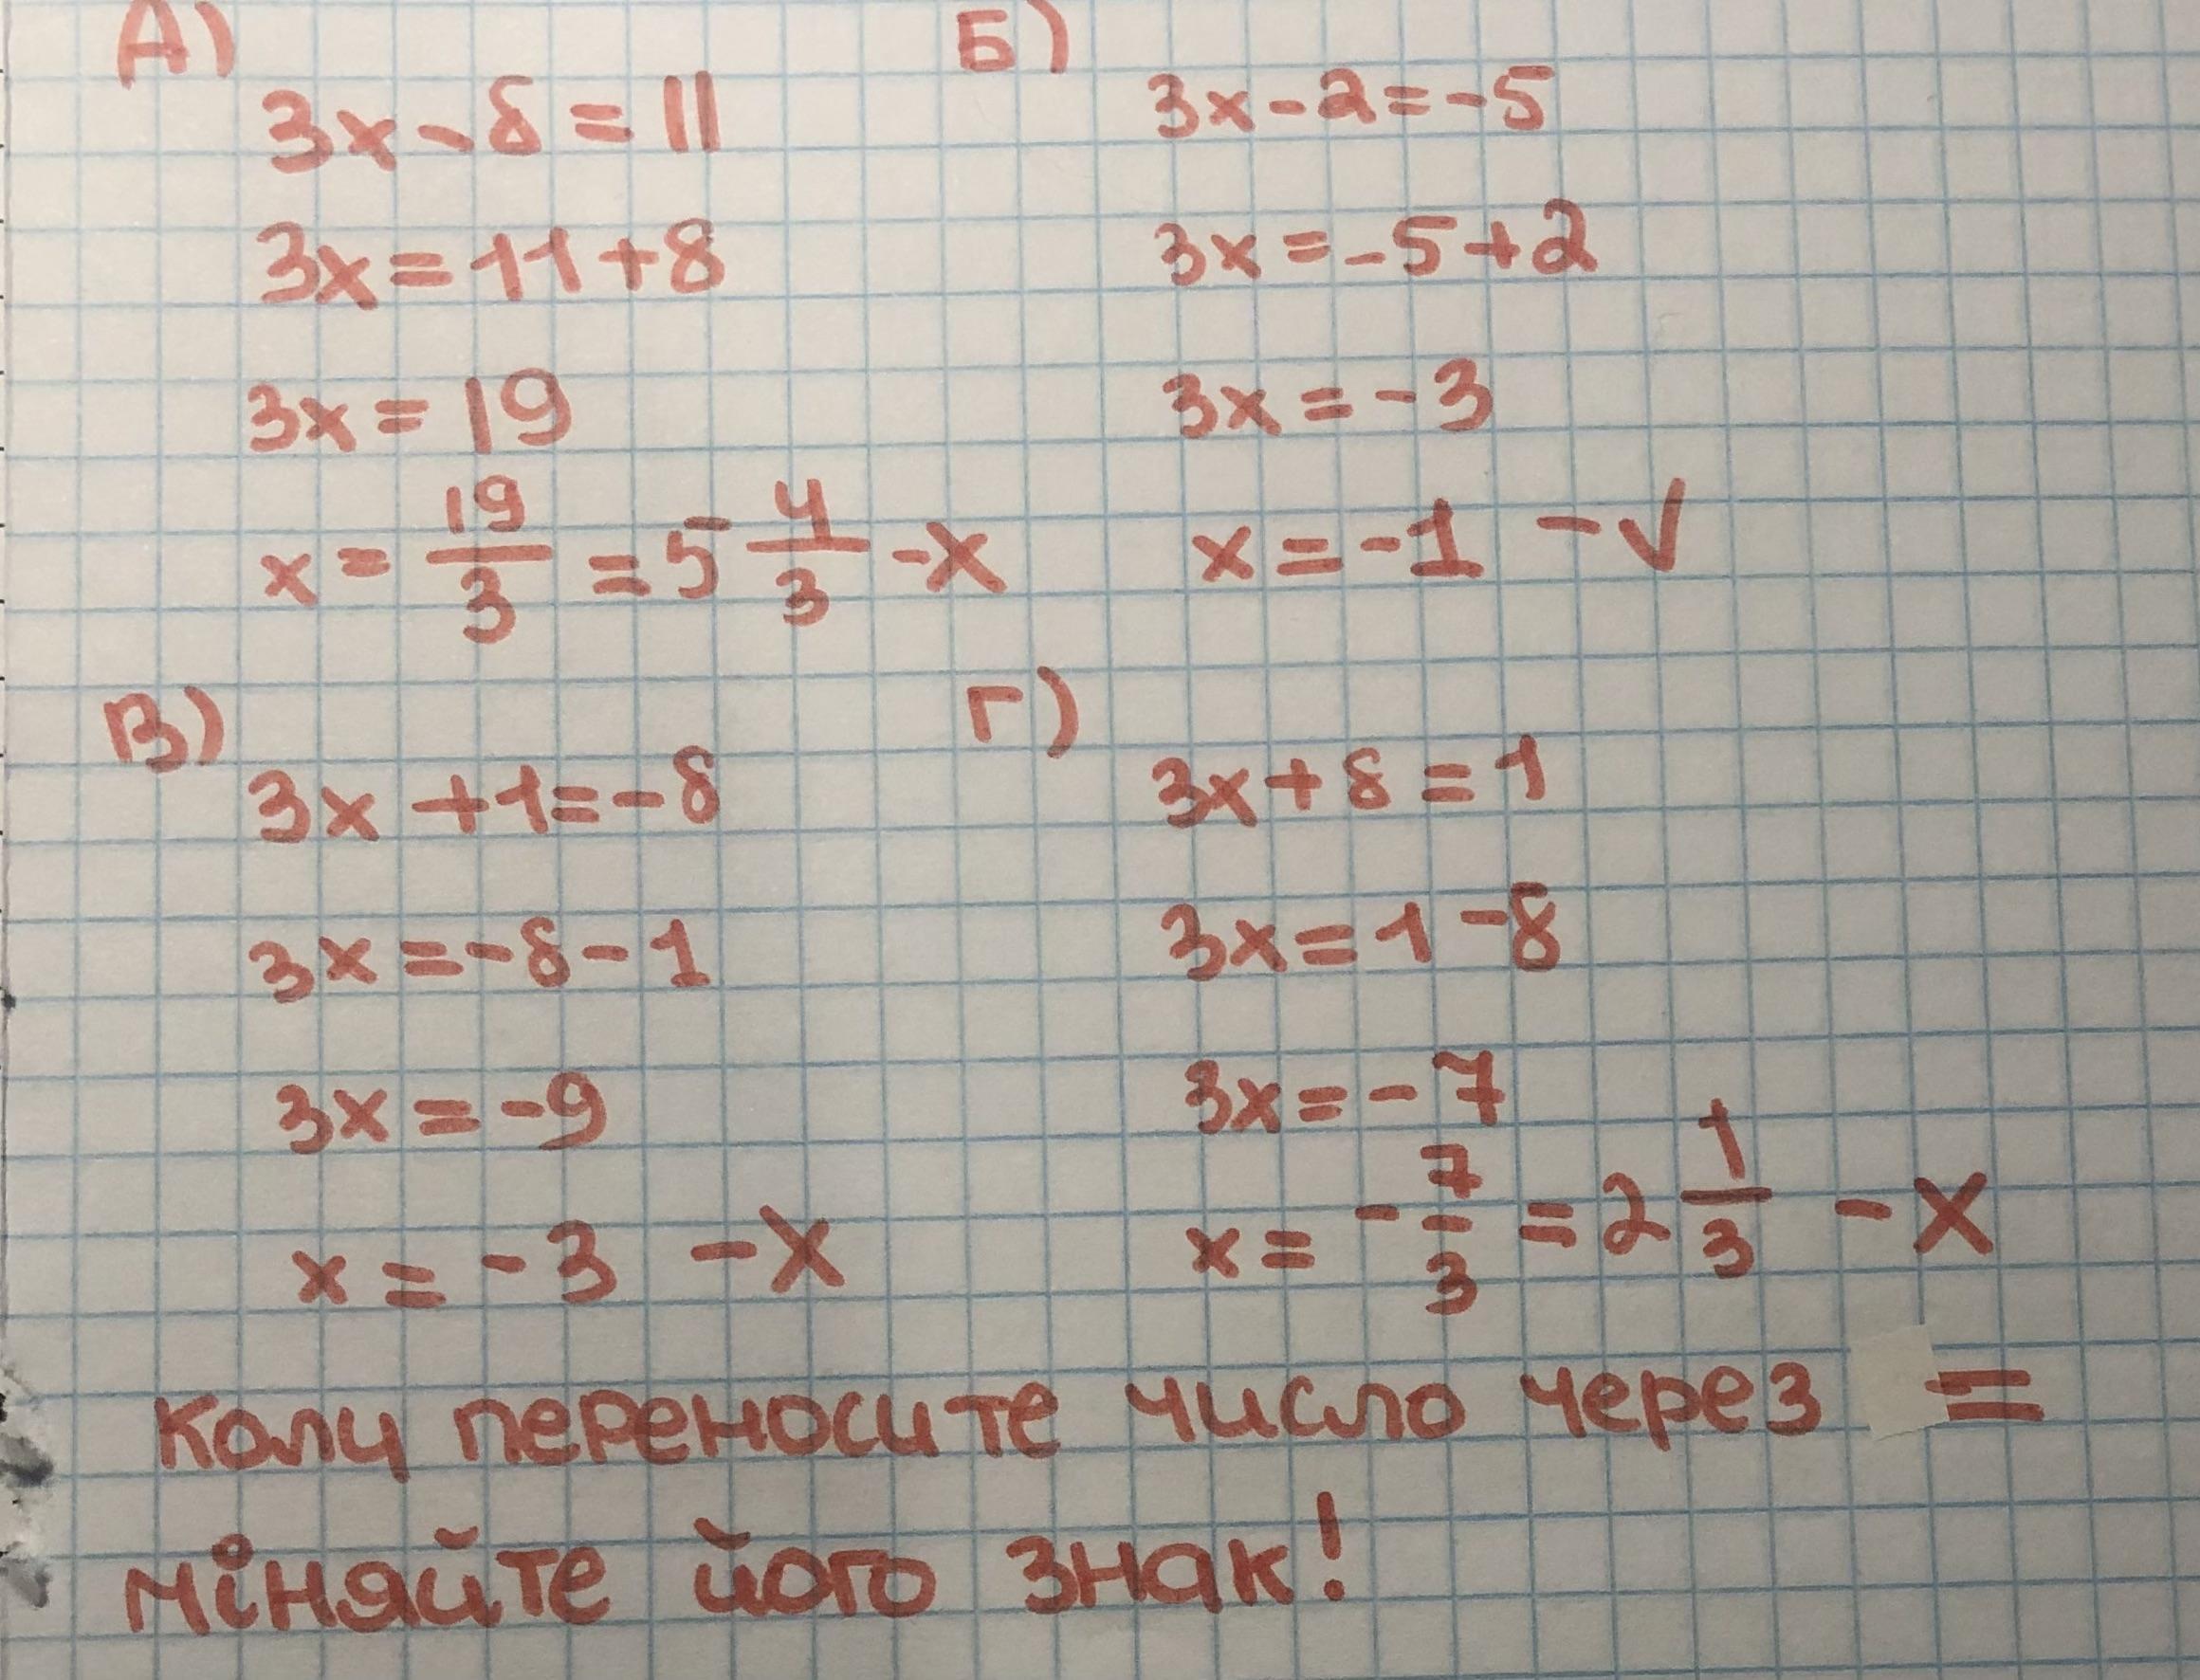 А)
3x - 8 = 11
3x = 11 + 8
3x = 19
x = 19/3 = 5 4/3 - X
Б)
3x - 2 = -5
3x = -5 + 2
3x = -3
x = -1 - √
В)
3x + 1 = -8
3x = -8 - 1
3x = -9
x = -3 - X
Г)
3x + 8 = 1
3x = 1 - 8
3x = -7
x = -7/3 = 2 1/3 - X
Коли переносите число через =
міняйте його знак!